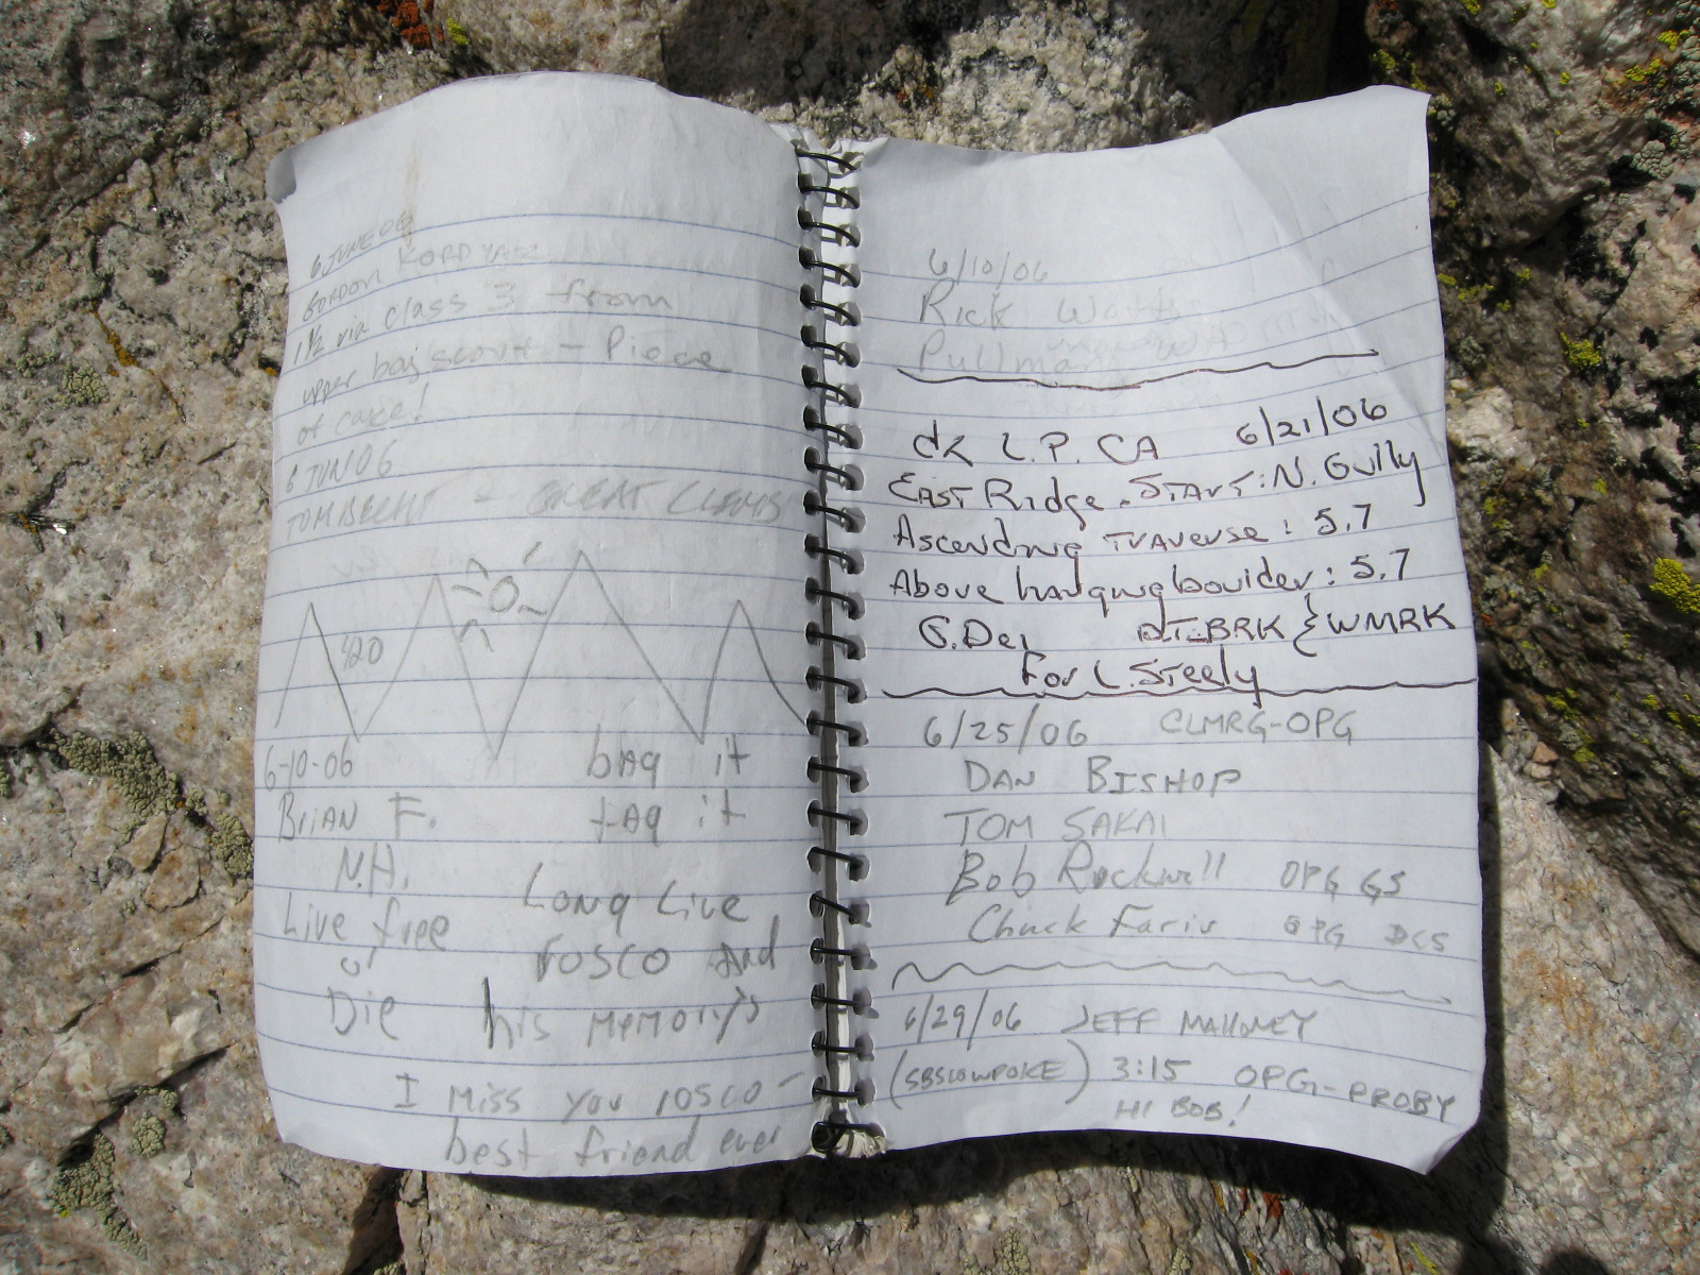 6 JUNE 06
GORDON
1 1/2 via class 3 from
upper boy scout - Piece
of cake!
6 JUN 06
TOM BECHT - GREAT CLIMB
420
6-10-06 bag it
BriAN F. tag it
N.H.
Live free
or
Die
Long Live
rosco And
his memorys
I Miss you rosco -
best friend ever
6/10/06
Rick
Pullman WA
dk L.P. CA 6/21/06
EAST Ridge. START: N. Gully
Ascending TrAverse: 5.7
Above hanging boulder: 5.7
BRK } WMRK
For L. Steely
6/25/06 CLMRG-OPG
DAN BISHOP
TOM SAKAI
Bob Rockwell OPG GS
Chuck Faris OPG DCS
6/29/06 JEFF MAHONEY
(SBSLOWPOKE) 3:15 OPG-PROBY
HI BOB!